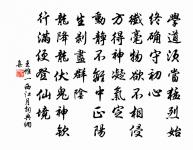 學道須當猛烈始
終確守初心
纖毫物欲不相侵
方得神凝氣定
動靜不離中正陽
生剝盡群陰
龍降虎伏鬼神欽
行滿便登仙境
王惟一西江月